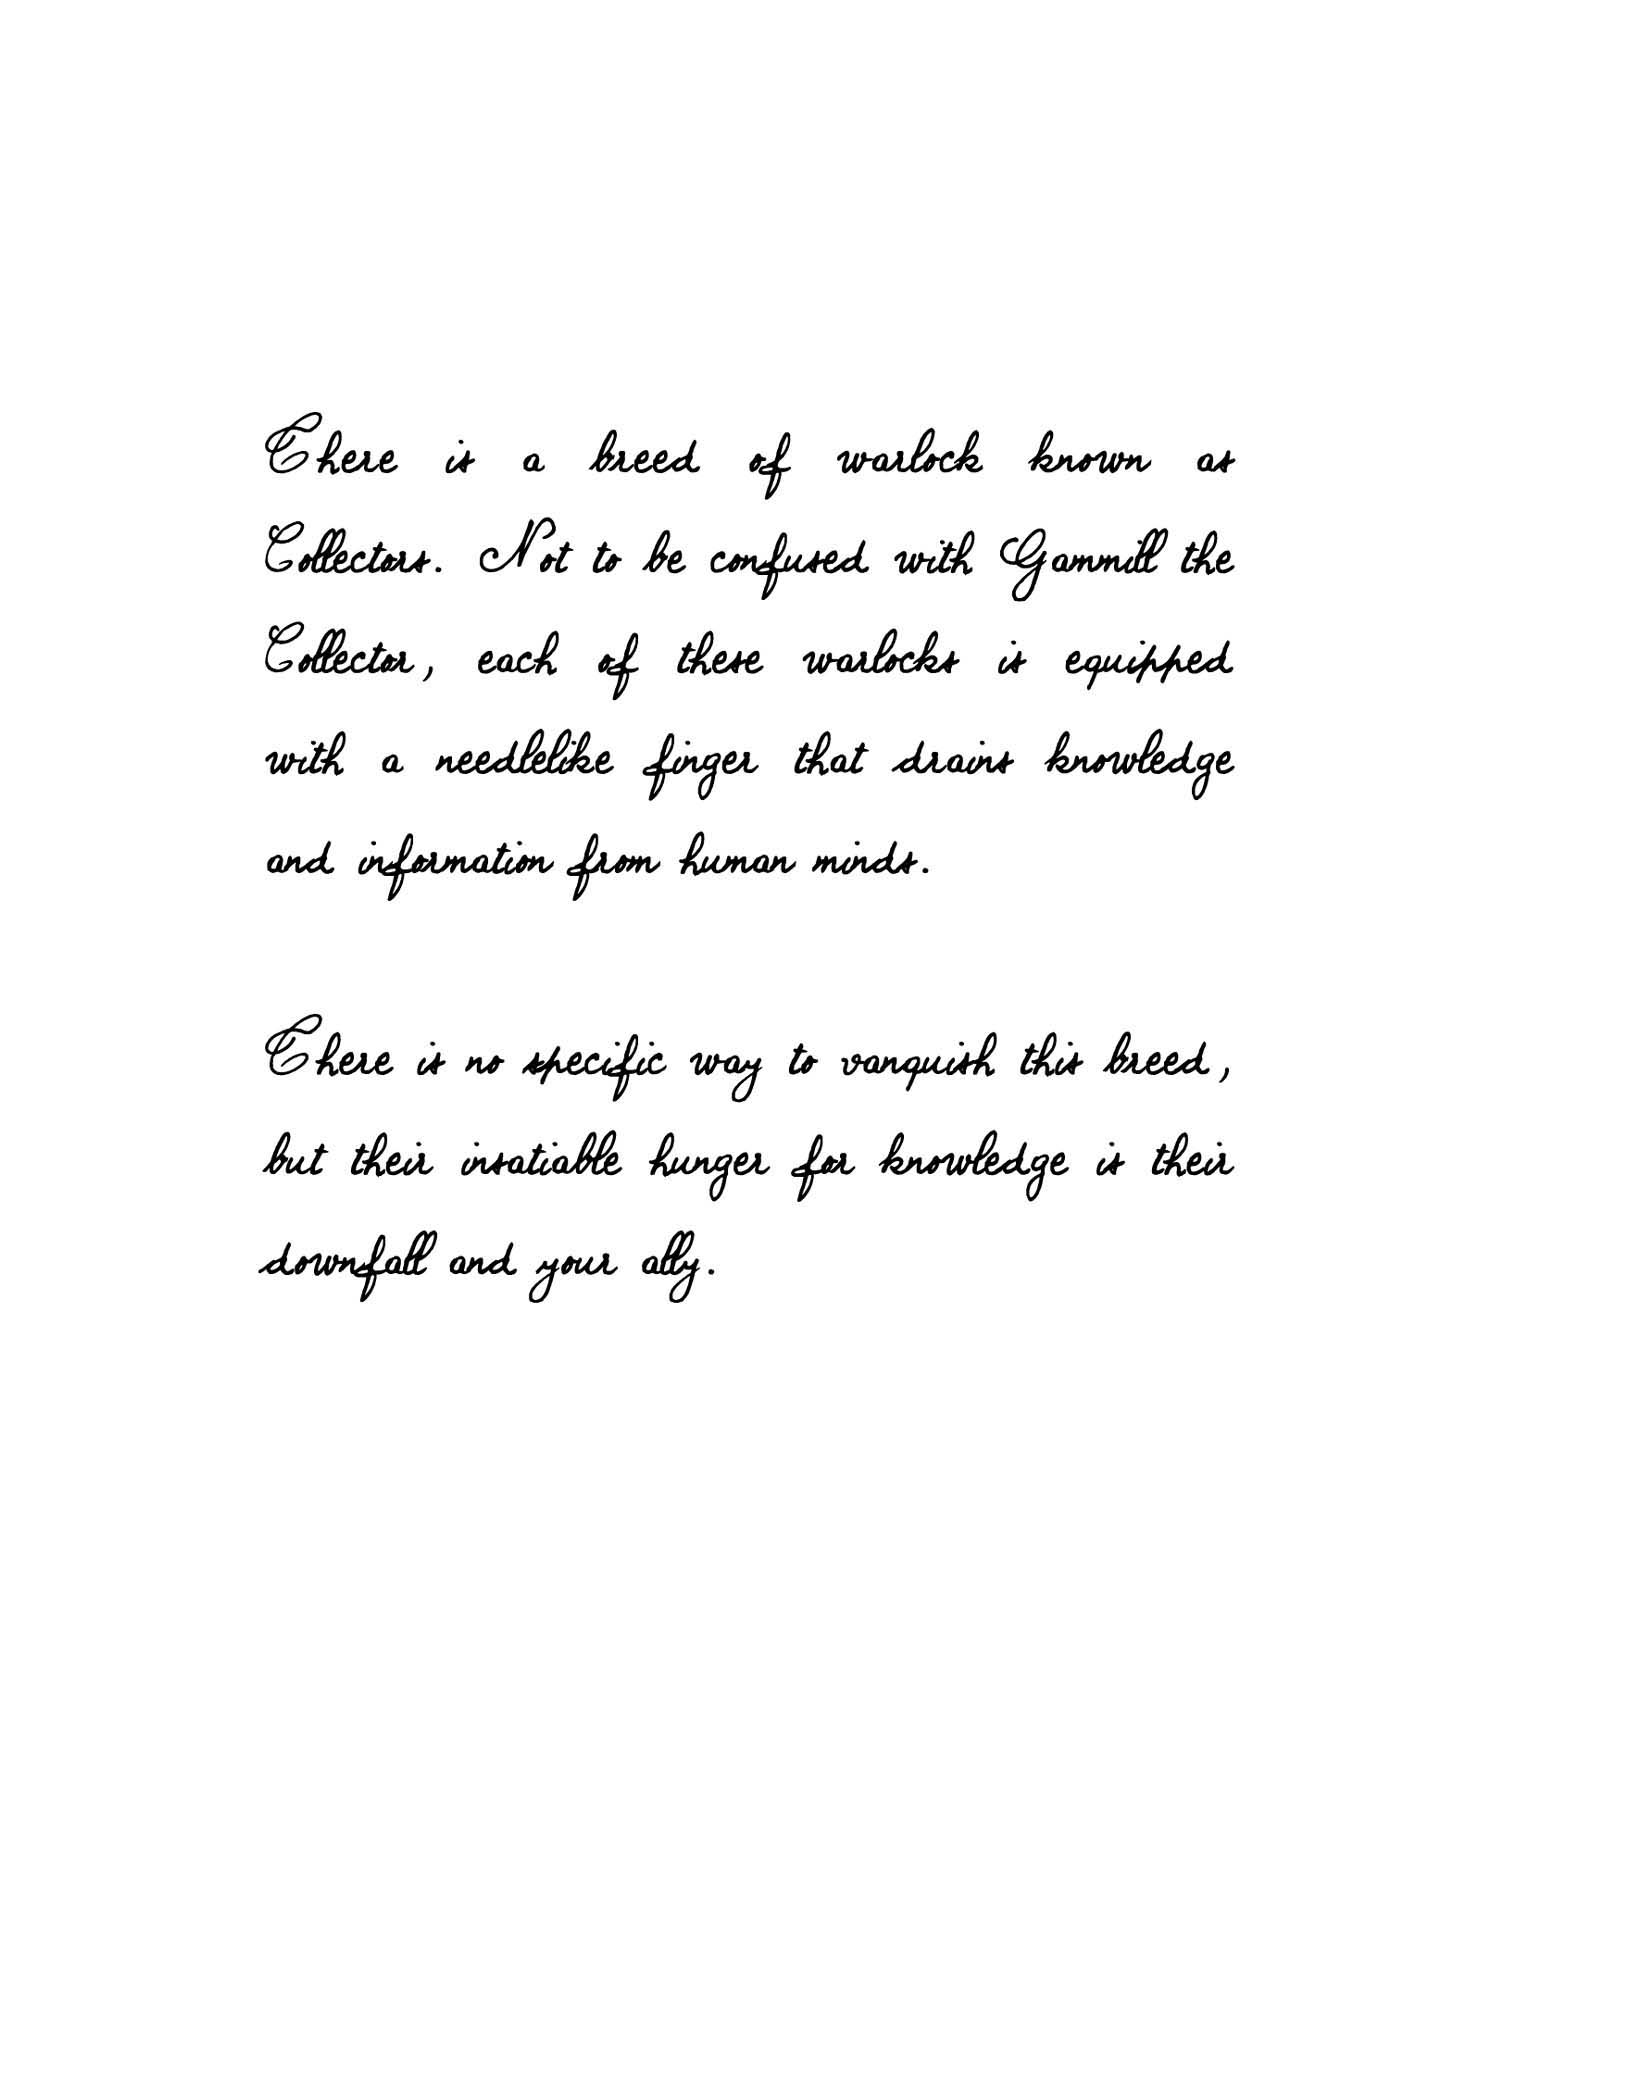 There is a breed of warlock known as
Collectors. Not to be confused with Gammill the
Collector, each of these warlocks is equipped
with a needlelike finger that drains knowledge
and information from human minds.
There is no specific way to vanquish this breed,
but their insatiable hunger for knowledge is their
downfall and your ally.